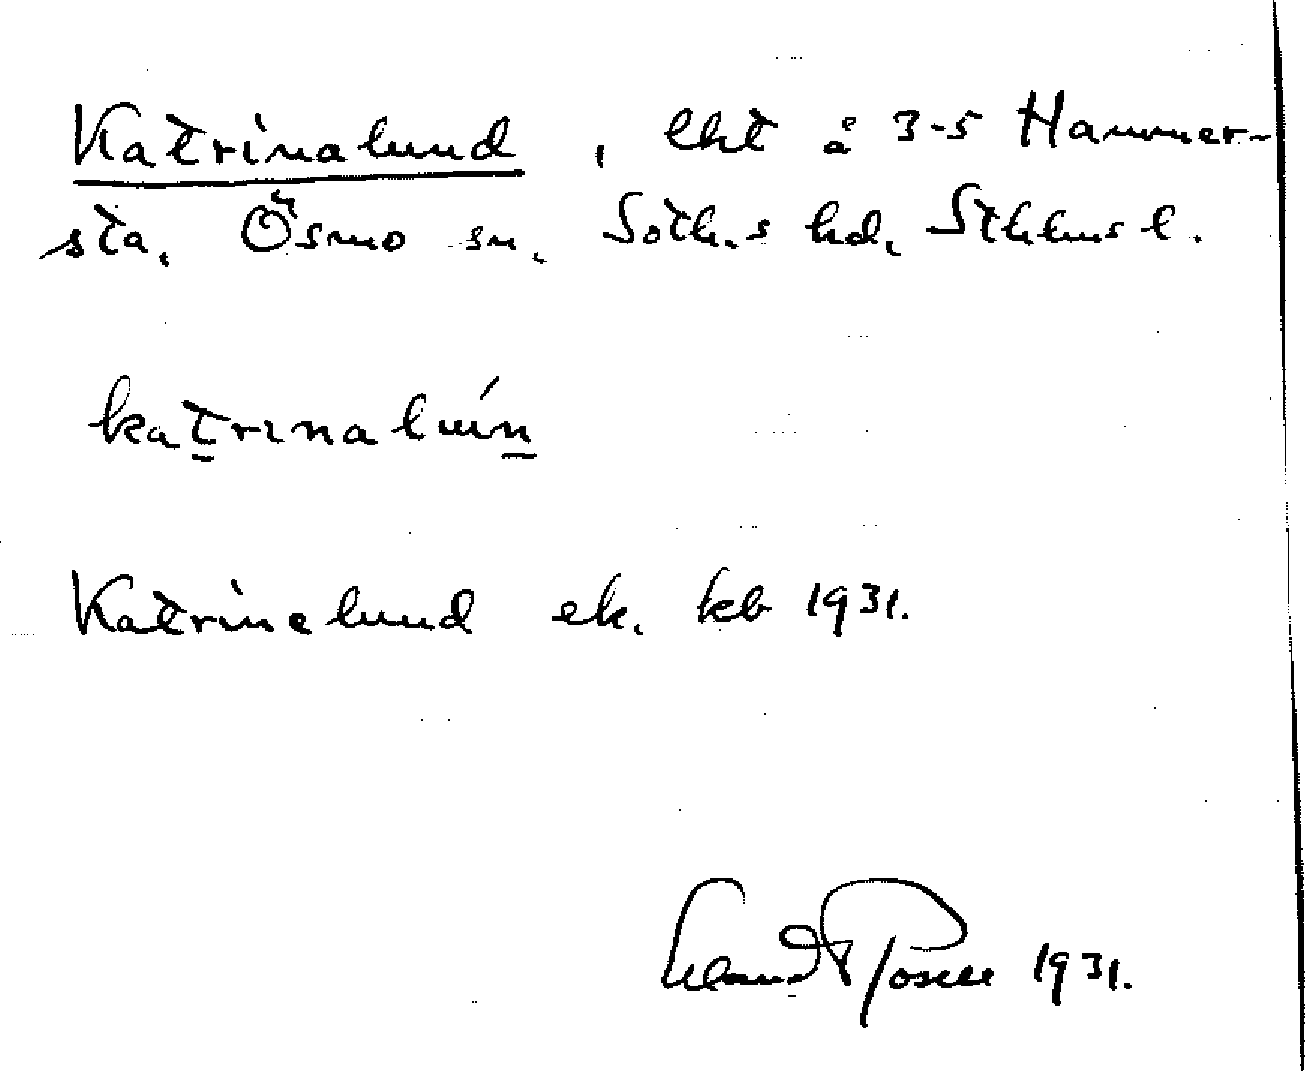 Katrinalund, lht å 3-5 Hammer-
sta, Ösmo sn, Soth.s hd, Sthlms l.
katrinalún
Katrinelund ek. kb 1931.
1931.